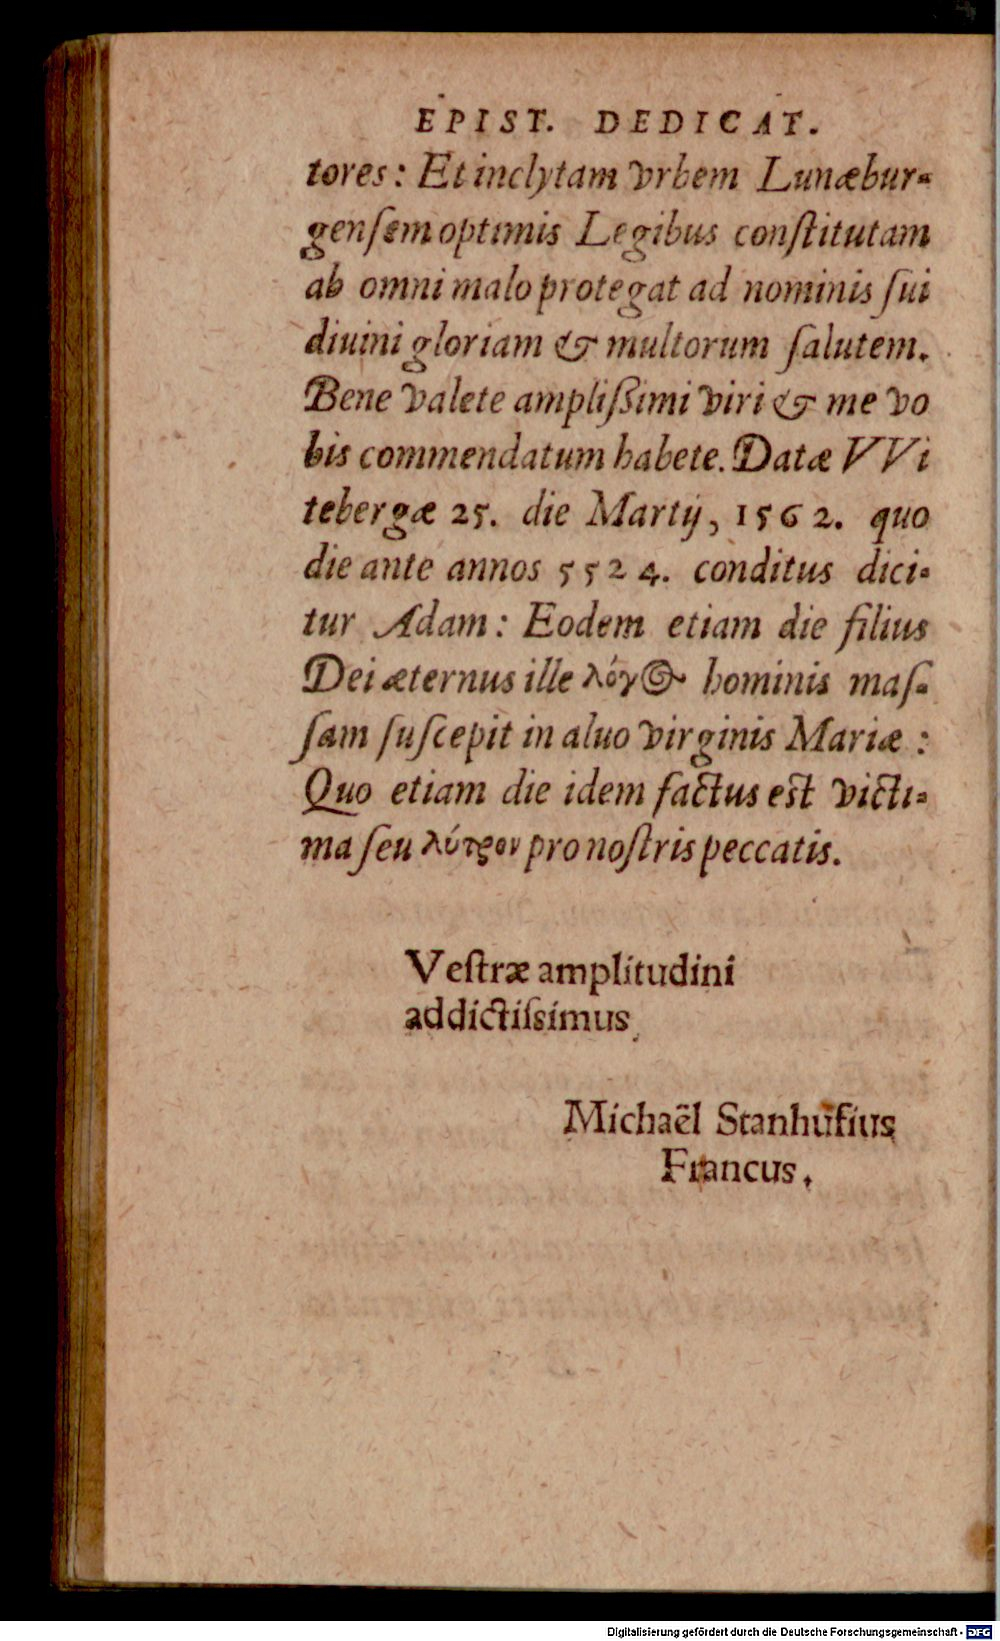 EPIST. DEDICAT.
tores: Et inclytam vrbem Lunæbur-
genſem optimis Legibus conſtitutam
ab omni malo protegat ad nominis ſui
diuini gloriam & multorum ſalutem.
Bene valete ampliſſimi viri & me vo
bis commendatum habete. Datæ VVi
tebergæ 25. die Martij, 1562. quo
die ante annos 5524. conditus dici-
tur Adam: Eodem etiam die filius
Dei æternus ille λόγος hominis maſ-
ſam ſuſcepit in aluo virginis Mariæ:
Quo etiam die idem factus est victi-
ma ſeu λύτρον pro noſtris peccatis.
Veſtræ amplitudini
addictiſsimus
Michaël Stanhufius
Francus.
Digitalisierung gefördert durch die Deutsche Forschungsgemeinschaft - DFG